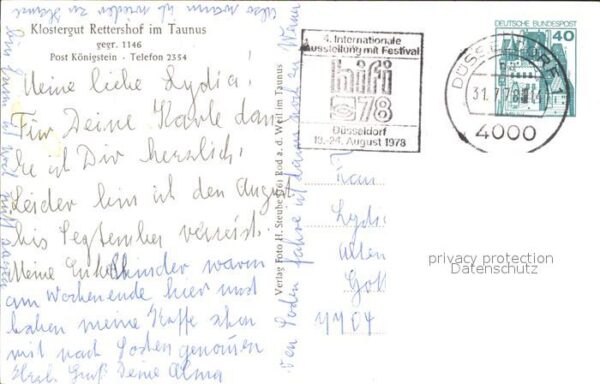 Klostergut Rettershof im Taunus
gegr. 1146
Post Königstein - Telefon 2354
Meine liebe Lydia!
Für Deine Karte dan
ke ich Dir herzlich.
Leider bin ich den August
bis September verreist.
Meine Enkelkinder waren
am Wochenende hier und
haben meine Koffer schon
mit nach Soden genommen
Herzl. Gruß Deine Alma
von Soden fahre ich dann noch
Verlag Foto H. Steube 6761 Rod a. d. Weil im Taunus
4. Internationale
Ausstellung mit Festival
hifi
78
Düsseldorf
18.-24. August 1978
DÜSSELDORF 1
31.7.78
4000
DEUTSCHE BUNDESPOST
40
Frau
Lydia
Alten
Gott
4404
privacy protection
Datenschutz